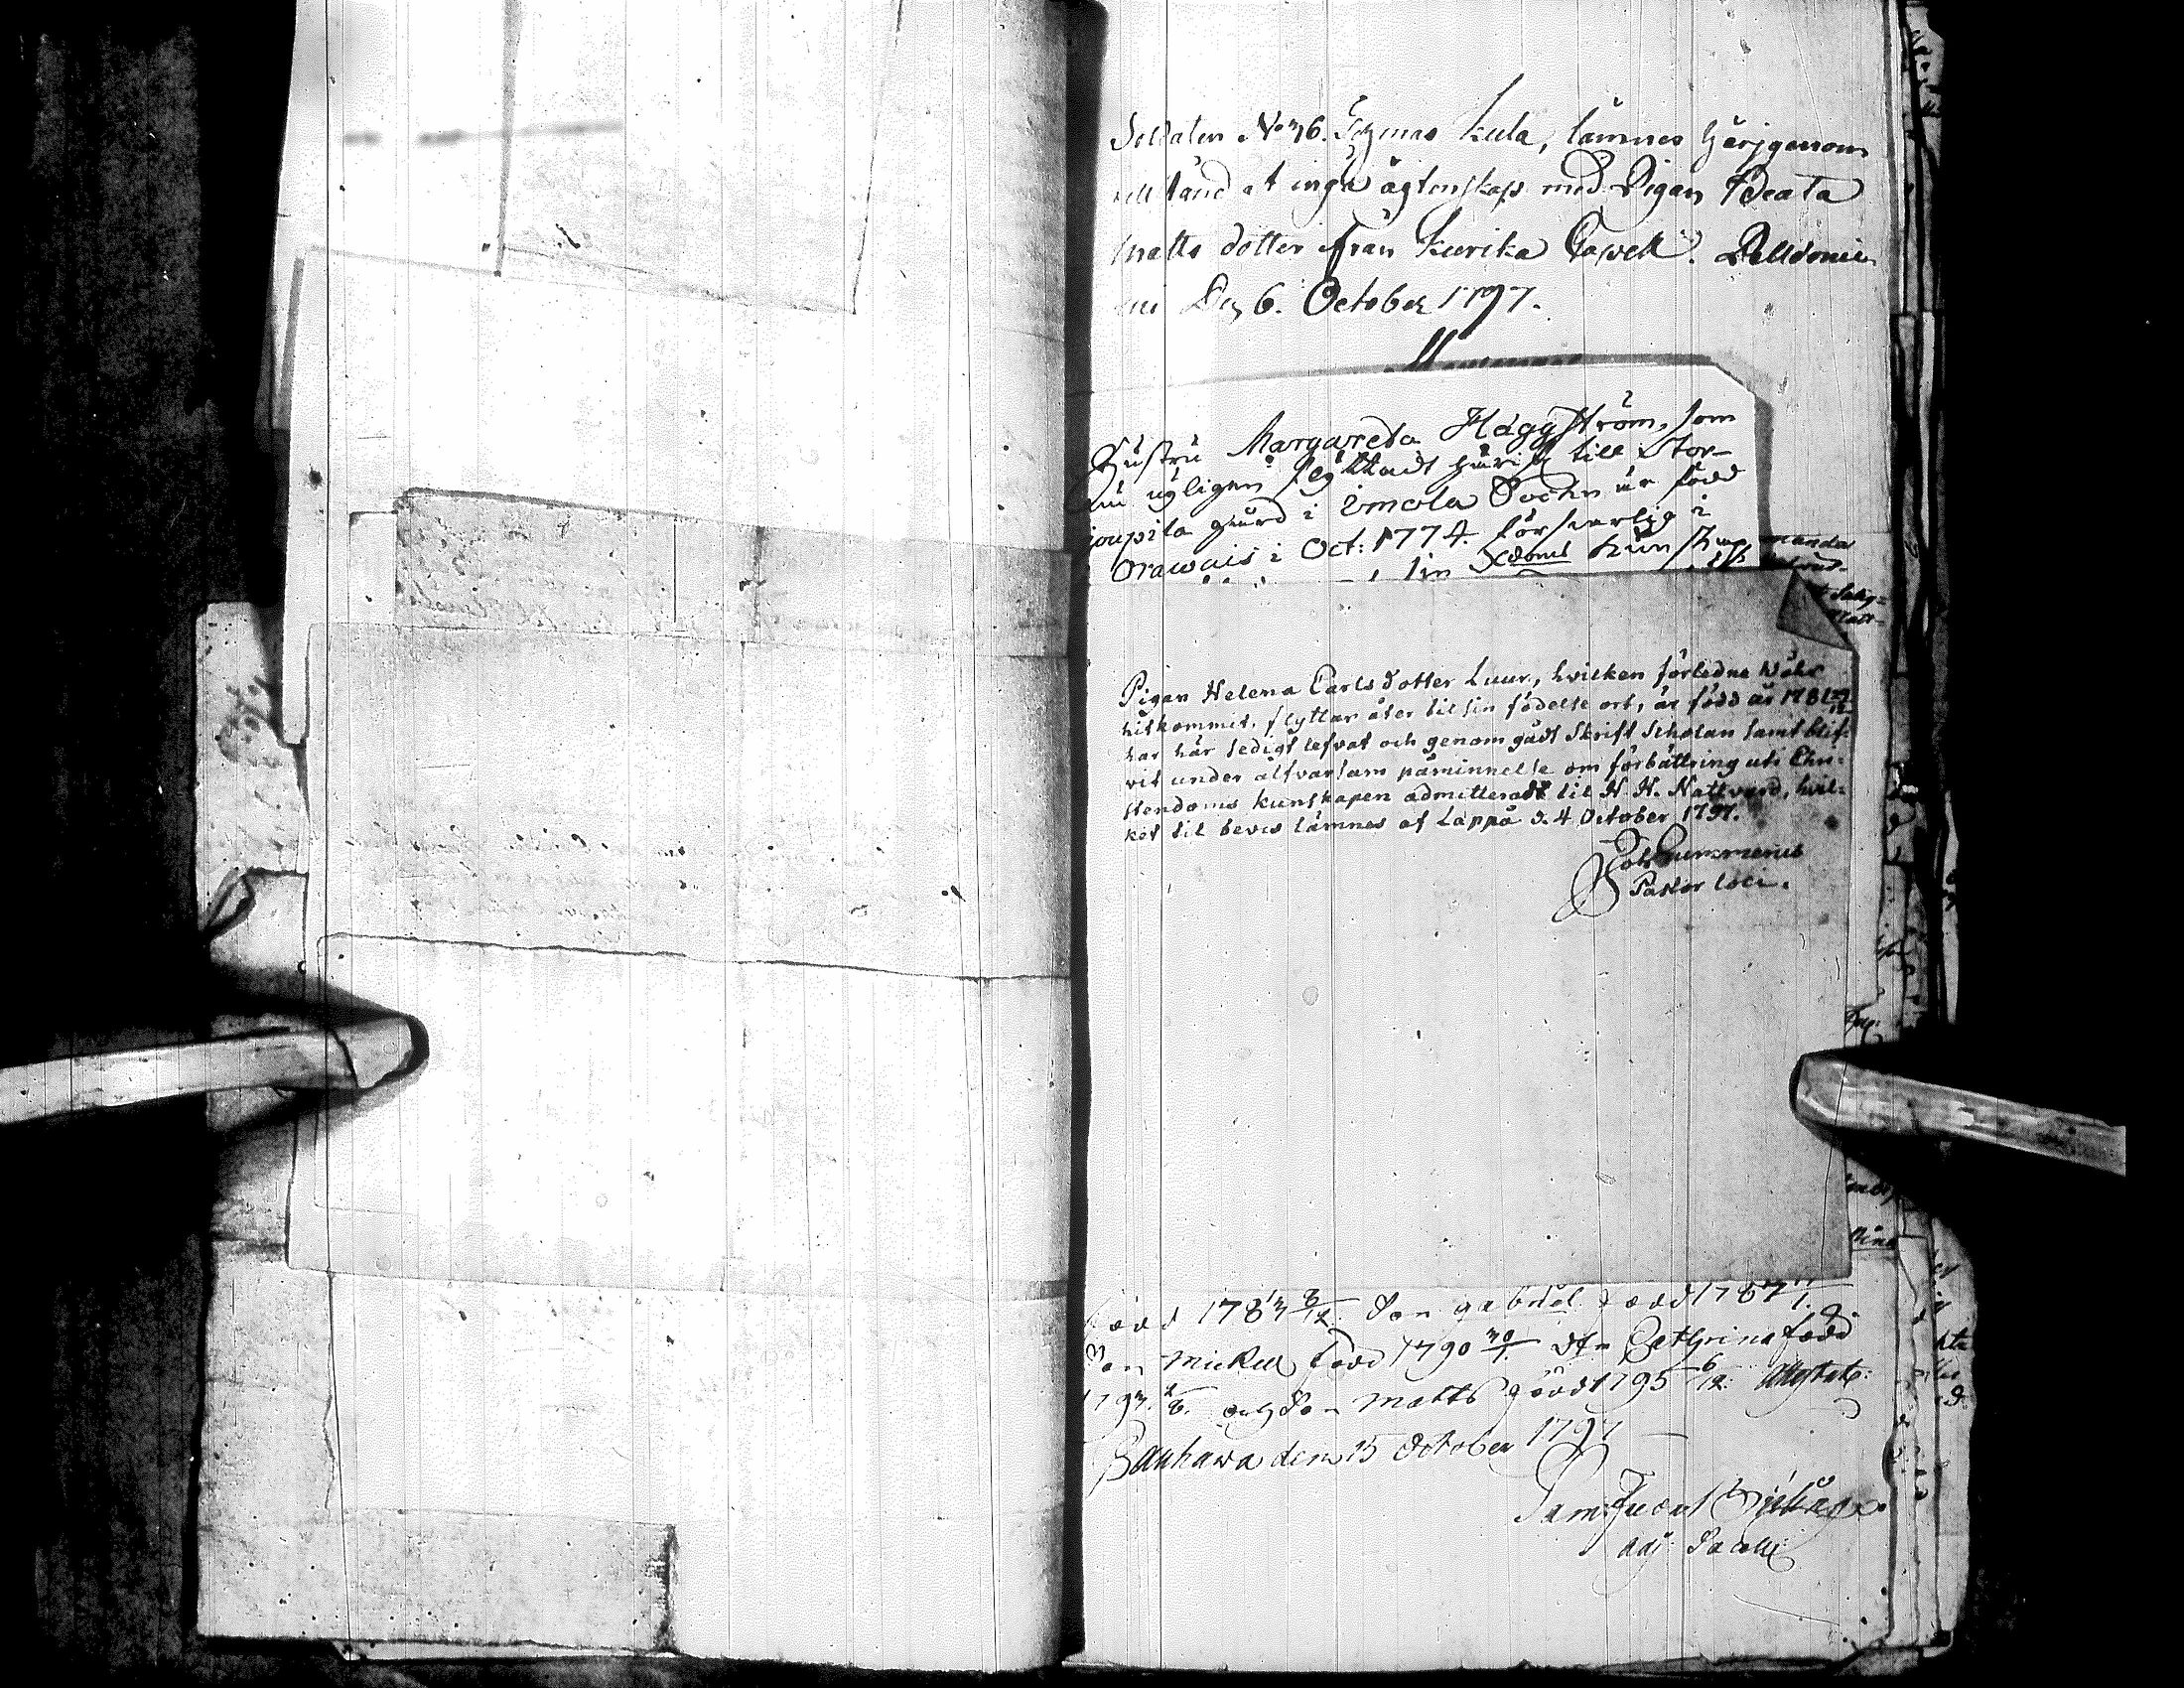 Soldaten No 76. Thomas Kula, lämnes härigenom
tillstånd at ingå ägtenskap med Pigan Beata
Matts dotter ifrån Kurika Capell.
den 6. October 1797.
Hustru Margareta Häggström, som
nu nyligen flyttadt härifrån till Stor-
joupila gård i Ilmola Sochn är född
i Orawais i Oct: 1774. försvarlig i
sin Xdoms kunskap
Pigan Helena Carlsdotter Luur, hvilken förledne Wåhr
hitkommit, flyttar åter til sin födelse ort, är född år 1781 29/12
har här ledigt lefvat och genomgådt Skrift Scholan samt blif-
vit under alfvarsam påminnelse om förbättring uti Chri-
stendoms kunskapen admitterad til H. H. Nattvard, hvil-
ket til bevis lämnes af Lappo d. 4 October 1797.
Joh Gummerus
Pastor loci.
född 178 Son gabriel född 1787
Son Mickel född 1790 30/1. dtr Cathrina född
179 och Son Matts född 1795 6/12. Attest:
Kauhava den 15 October 1797
Sam: 
adj: Sacelli